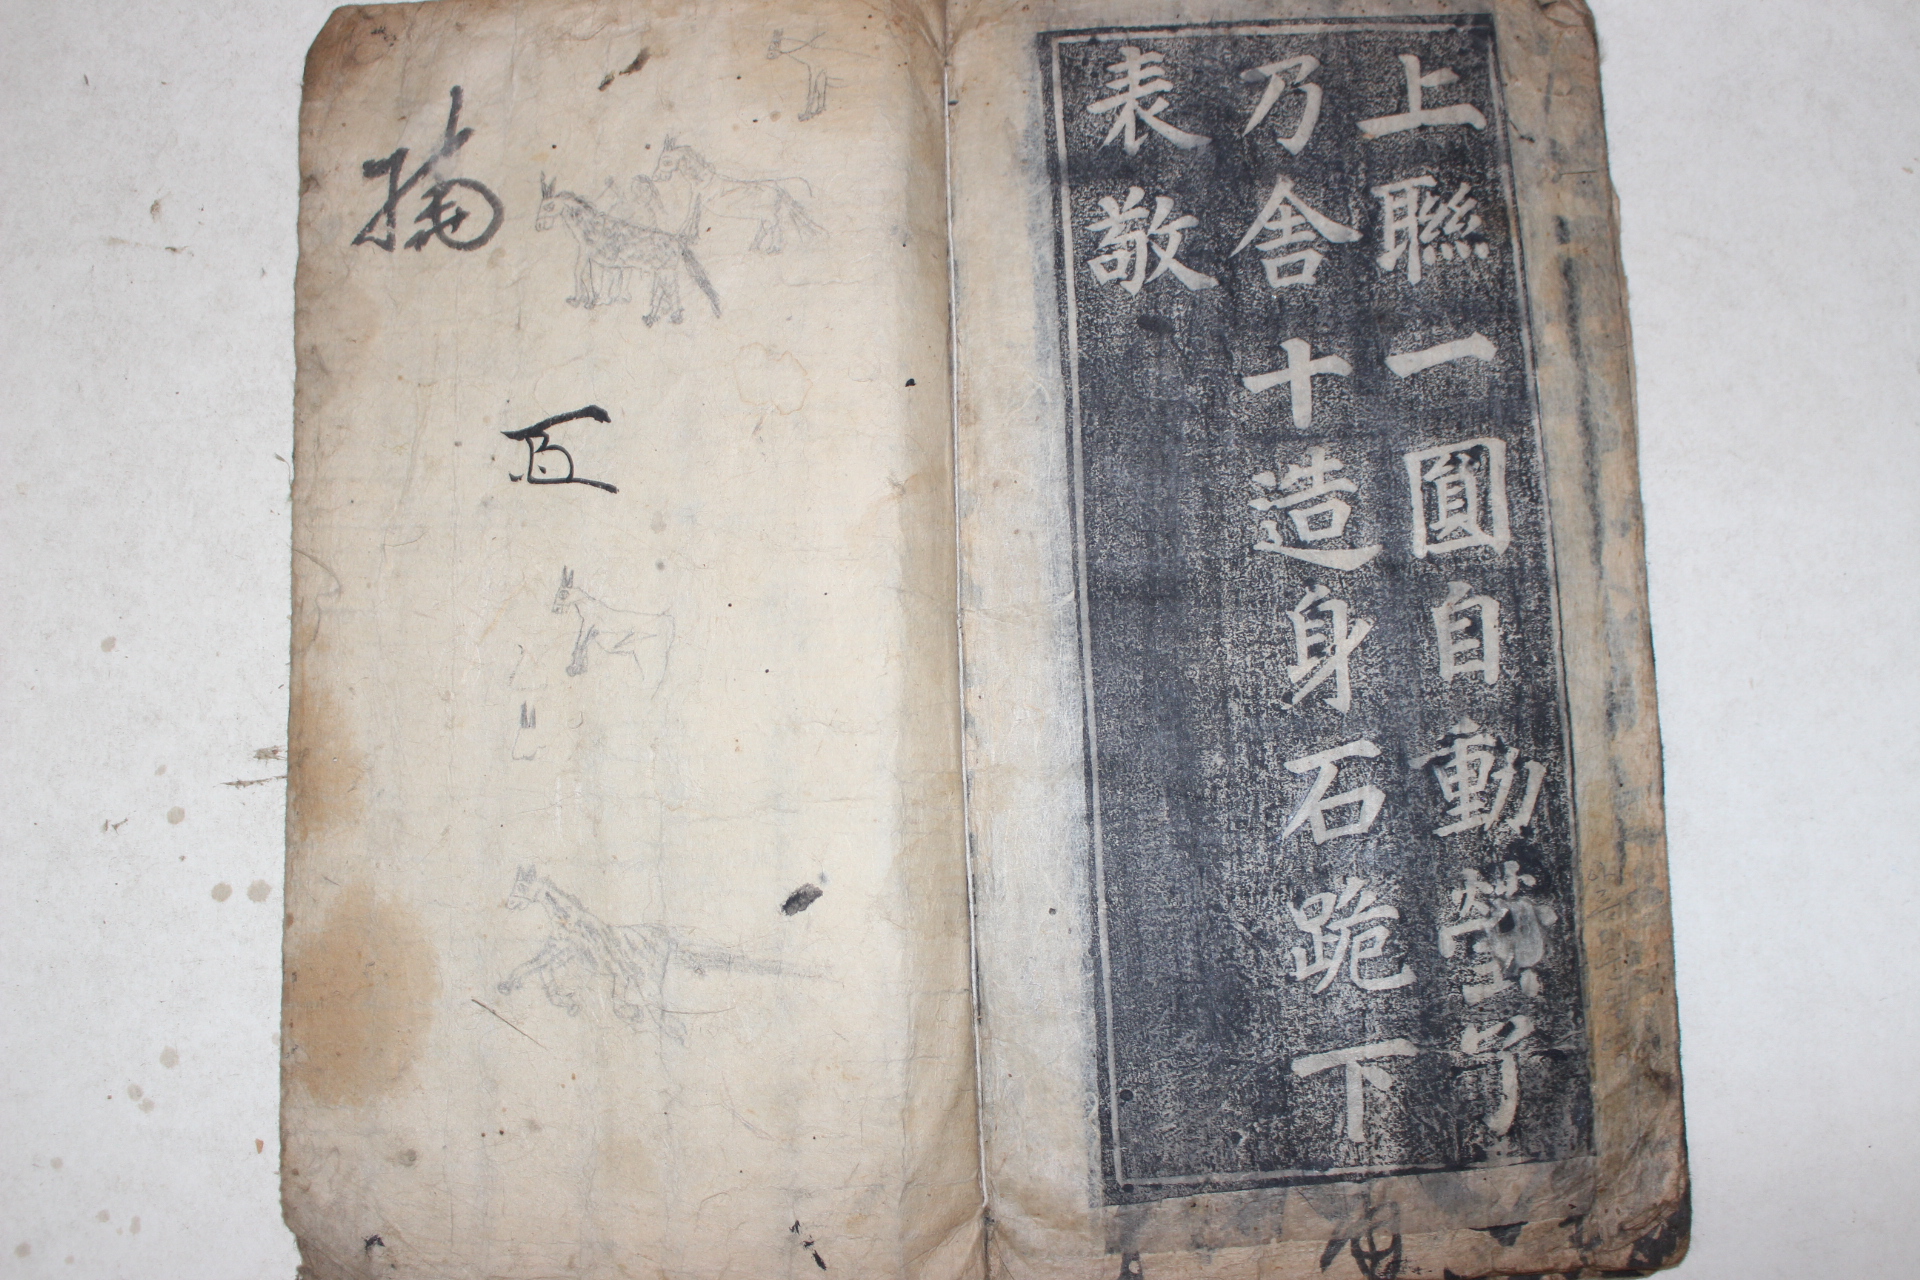 上聯一圓自動瑩兮
乃舍十造身石跪下
表敬